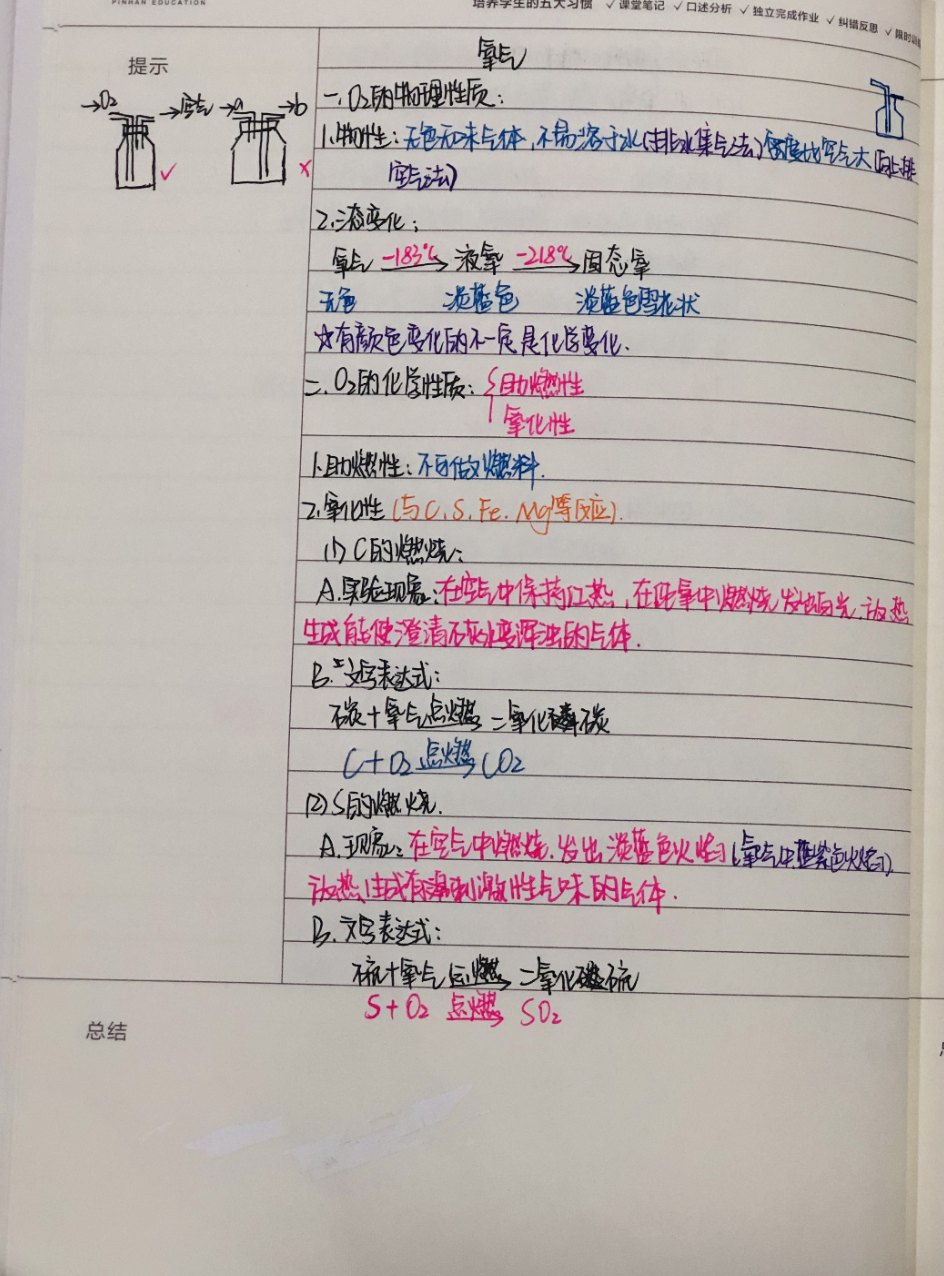 PINHAN EDUCATION
培养学生的五大习惯 ✓课堂笔记 ✓口述分析 ✓独立完成作业 ✓纠错反思 ✓限时训
提示
→O2 →空气 →a →b
✓ ×
氧气
一.O2的物理性质:
1.物性:无色无味气体,不易溶于水(排水集气法)密度比空气大(向上排
空气法)
2.态变化:
氧气 -183℃ 液氧 -218℃ 固态氧
无色 淡蓝色 淡蓝色雪花状
☆有颜色变化的不一定是化学变化.
二.O2的化学性质:{助燃性
氧化性
1.助燃性:不可做燃料.
2.氧化性(与C.S.Fe.Mg等反应).
(1)C的燃烧:
A.实验现象:在空气中保持红热,在纯氧中燃烧发出白光,放热
生成能使澄清石灰水变浑浊的气体.
B.文字表达式:
碳+氧气 点燃 二氧化碳
C+O2 点燃 CO2
(2)S的燃烧.
A.现象:在空气中燃烧.发出淡蓝色火焰(氧气中蓝紫色火焰).
放热,生成有刺激性气味的气体.
B.文字表达式:
硫+氧气 点燃 二氧化硫
S+O2 点燃 SO2
总结